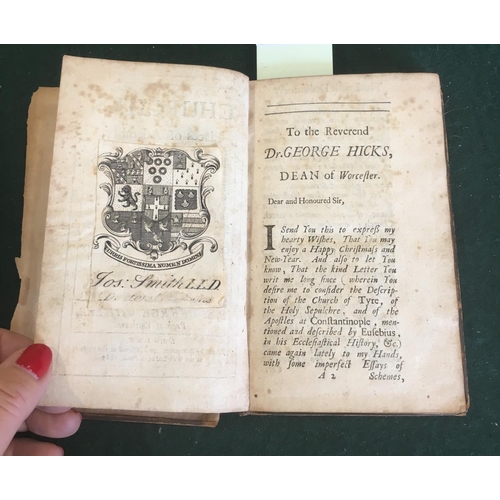 TURRIS FORTISSIMA NOMEN DOMINI
Jos: Smith L.L.D.
To the Reverend
Dr. GEORGE HICKS,
DEAN of Worcester.
Dear and Honoured Sir,
I Send You this to expreſs my
hearty Wiſhes, That You may
enjoy a Happy Chriſtmaſs and
New-Year. And alſo to let You
know, That the kind Letter You
writ me long ſince (wherein You
deſire me to conſider the Deſcrip-
tion of the Church of Tyre, of
the Holy Sepulchre, and of the
Apoſtles at Conſtantinople, men-
tioned and deſcribed by Euſebius,
in his Eccleſiaſtical Hiſtory, &c.)
came again lately to my Hands,
with ſome imperfect Eſſays of
A 2 Schemes,